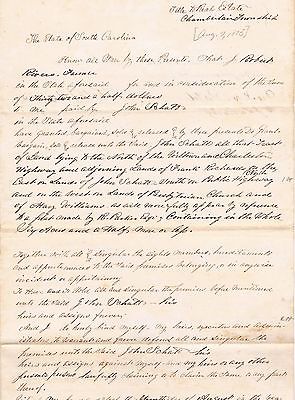 Title to Real Estate
Chamberlain Township
The State of South Carolina
[Aug. 9, 1875]
Know all Men by these Presents, That I Robert
Rivers, Farmer
in the State aforesaid for and in consideration of the sum
of Thirty two and a half dollars
to me paid by John Schutt
in the State aforesaid
have Granted, Bargained, Sold & released & by these presents do Grant,
Bargain, Sell & release unto the said John Schutt all that Tract
of Land lying to the North of the and Charleston
Highway and adjoining Lands of Frank Richardson on the
East on Lands of John Schutt South on Public Highway
and on the West on Lands of Presbyterian Church and
of Williams as will more fully appear by reference
to a plat made by and Containing in the Whole
Six Acres and a Half, More or less.
Together with all & Singular the rights Members, hereditaments
and appurtenances to the said premises belonging, or in anywise
incident or appertaining
To Have and to Hold all and Singular the premises before Mentioned
unto the said John Schutt his
heirs and assigns forever
And I do hereby bind Myself, My heirs, executors and Admin-
istrators to Warrant and forever defend all and Singular the
premises unto the said John Schutt his
heirs and Assigns against Myself and My heirs & any other
persons lawfully claiming or to claim the same or any part
thereof.
day of August in the year